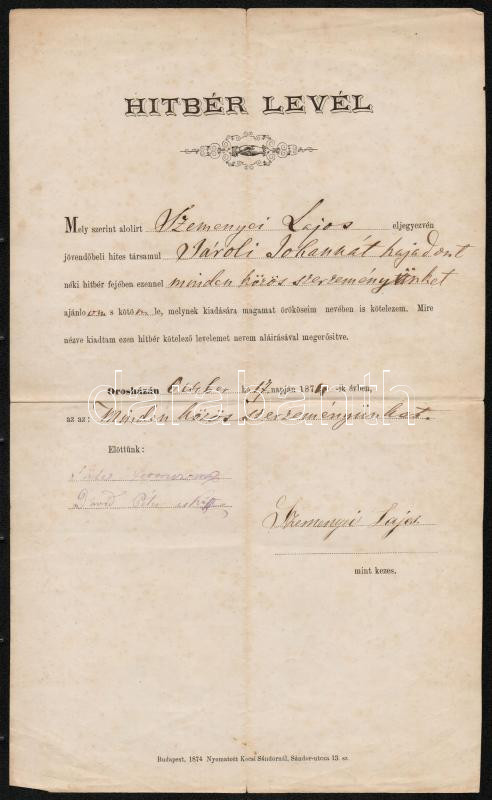 HITBÉR LEVÉL
Mely szerint alolirt Szemenyei Lajos eljegyezvén
jövendőbeli hites társamul Jároli Johannát hajadont
néki hitbér fejében ezennel minden közös szerzeményünket
ajánlom s kötöm le, melynek kiadására magamat örököseim nevében is kötelezem. Mire
nézve kiadtam ezen hitbér kötelező levelemet nevem aláirásával megerősitve.
Orosházán hó 17 napján 187 -ik évben,
az az: Minden közös szerzeményünket.
Előttünk:
Dávid Péter
Szemenyei Lajos
mint kezes.
Budapest, 1874 Nyomatott Kocsi Sándornál, Sándor-utcza 13. sz.
darabanth